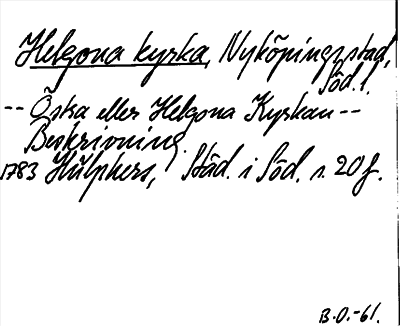 Helgona kyrka, Nyköpingsstad,
Söd.l.
-- Östra eller Helgona Kyrkan --
Beskrivning.
1783 Hülphers, Städ. i Söd. s. 20 f.
B.O.-61.